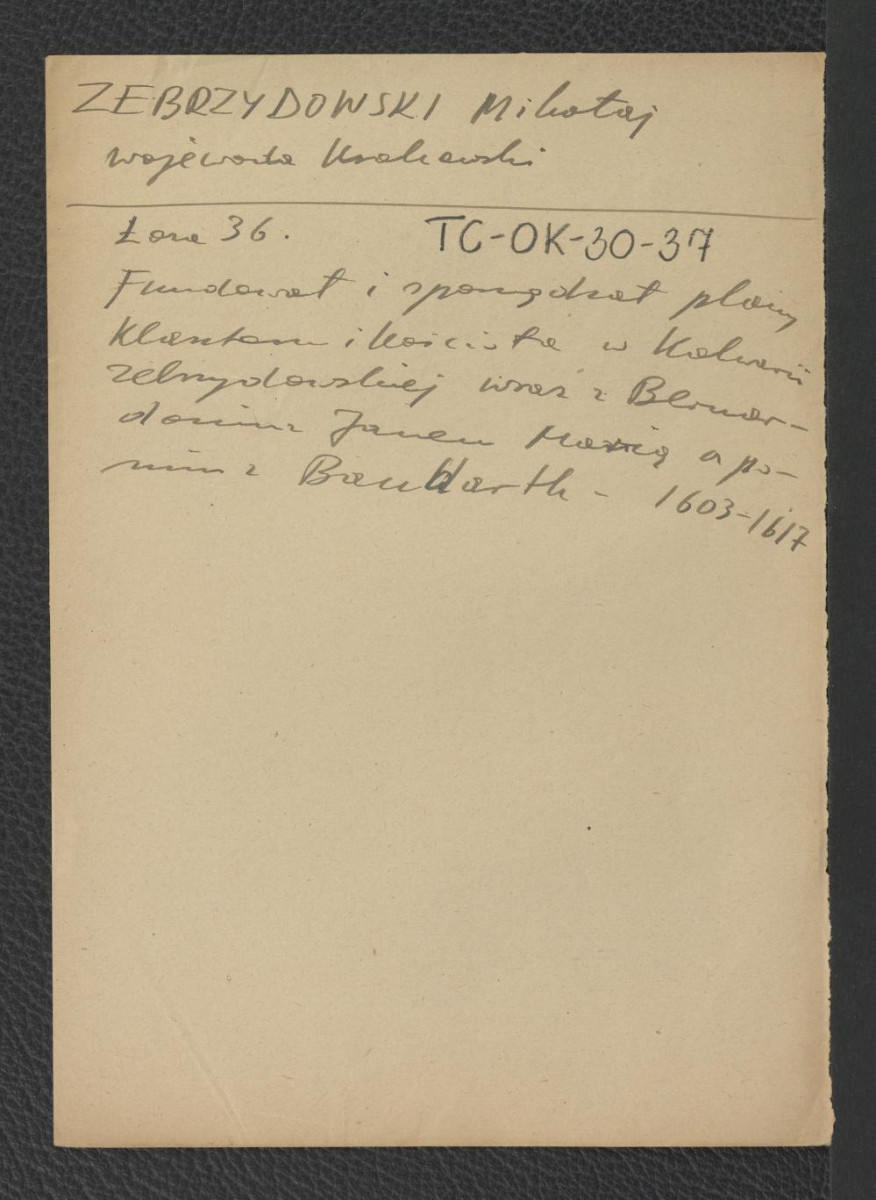 ZEBRZYDOWSKI Mikołaj
wojewoda Krakowski
Łoza 36. TC-OK-30-37
Fundował i sporządzał plany
Klasztoru i kościoła w Kalwarii
Zebrzydowskiej wraz z Bernar-
donim Janem Marią a po
nim z Baudarth - 1603-1617